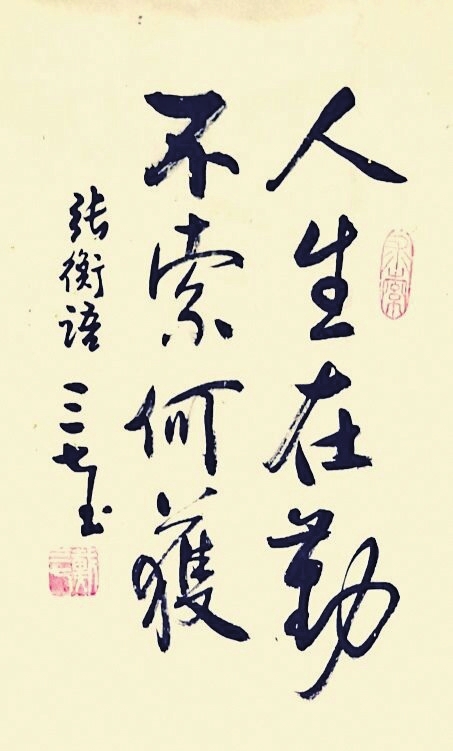 人生在勤
不索何獲
張衡語 三七書